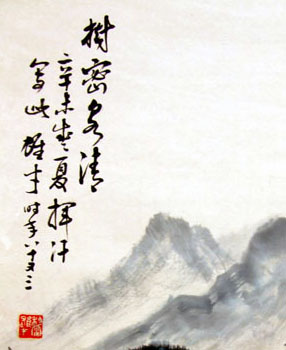 樹密清
辛未盛夏揮汗
寫此雄才時年八十又三